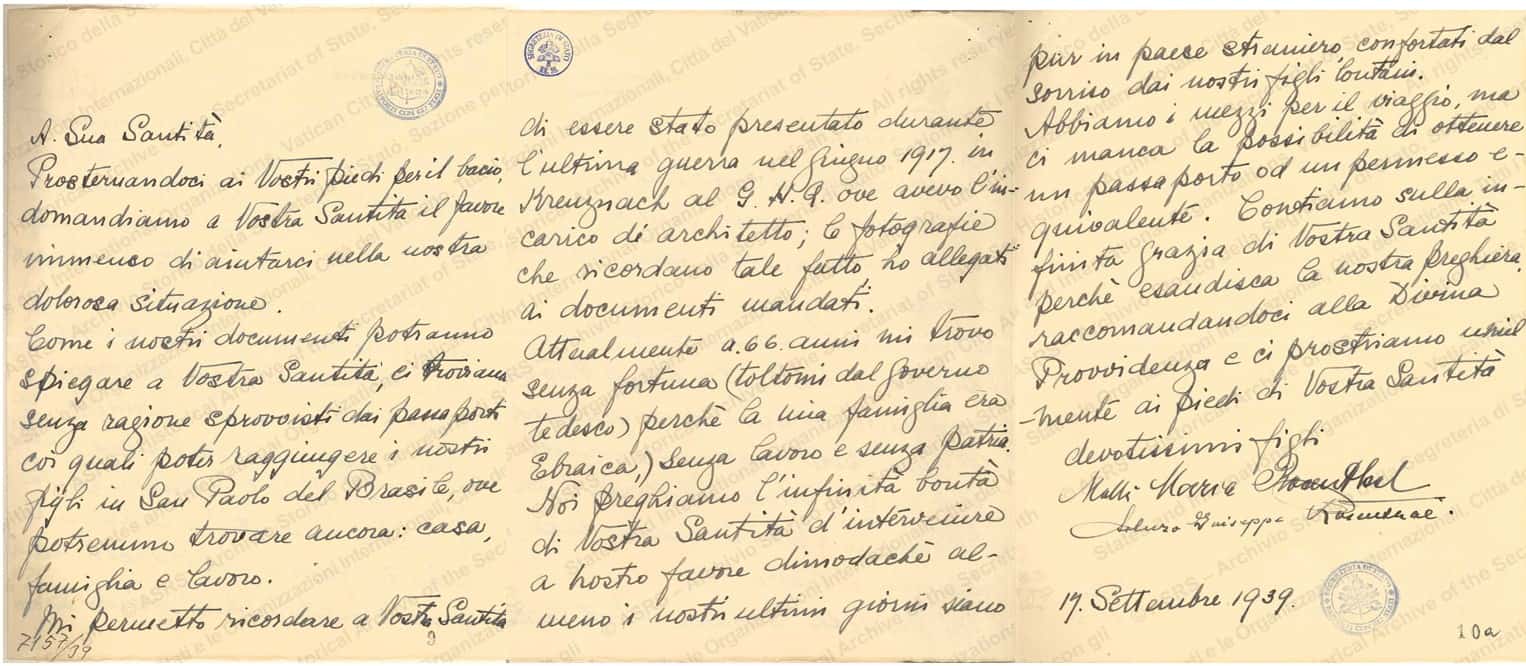 A. Sua Santità,
Prosternandoci ai Vostri piedi per il bacio,
domandiamo a Vostra Santità il favore
immenso di aiutarci nella nostra
dolorosa situazione.
Come i nostri documenti potranno
spiegare a Vostra Santità, ci troviamo
senza ragione sprovvisti dai passaporti
coi quali poter raggiungere i nostri
figli in San Paolo del Brasile, ove
potremmo trovare ancora: casa,
famiglia e lavoro.
Mi permetto ricordare a Vostra Santità
7157/39
9
SEGRETERIA DI STATO
di essere stato presentato durante
l'ultima guerra nel Giugno 1917. in
Kreuznach al G. H. Q. ove avevo l'in-
carico di architetto; le fotografie
che ricordano tale fatto, ho allegati
ai documenti mandati.
Attualmente a. 66. anni mi trovo
senza fortuna (toltomi dal governo
tedesco) perchè la mia famiglia era
Ebraica,) senza lavoro e senza patria.
Noi preghiamo l'infinità bontà
di Vostra Santità d'intervenire
a nostro favore dimodachè al-
meno i nostri ultimi giorni siano
pur in paese straniero confortati dal
sorriso dai nostri figli lontani.
Abbiamo i mezzi per il viaggio, ma
ci manca la possibilità di ottenere
un passaporto od un permesso e-
quivalente. Contiamo sulla in-
finita grazia di Vostra Santità
perchè esaudisca la nostra preghiera,
raccomandandoci alla Divina
Provvidenza e ci prostriamo umil
-mente ai piedi di Vostra Santità
devotissimi figli
Maria
Giuseppe
17. Settembre 1939.
10a